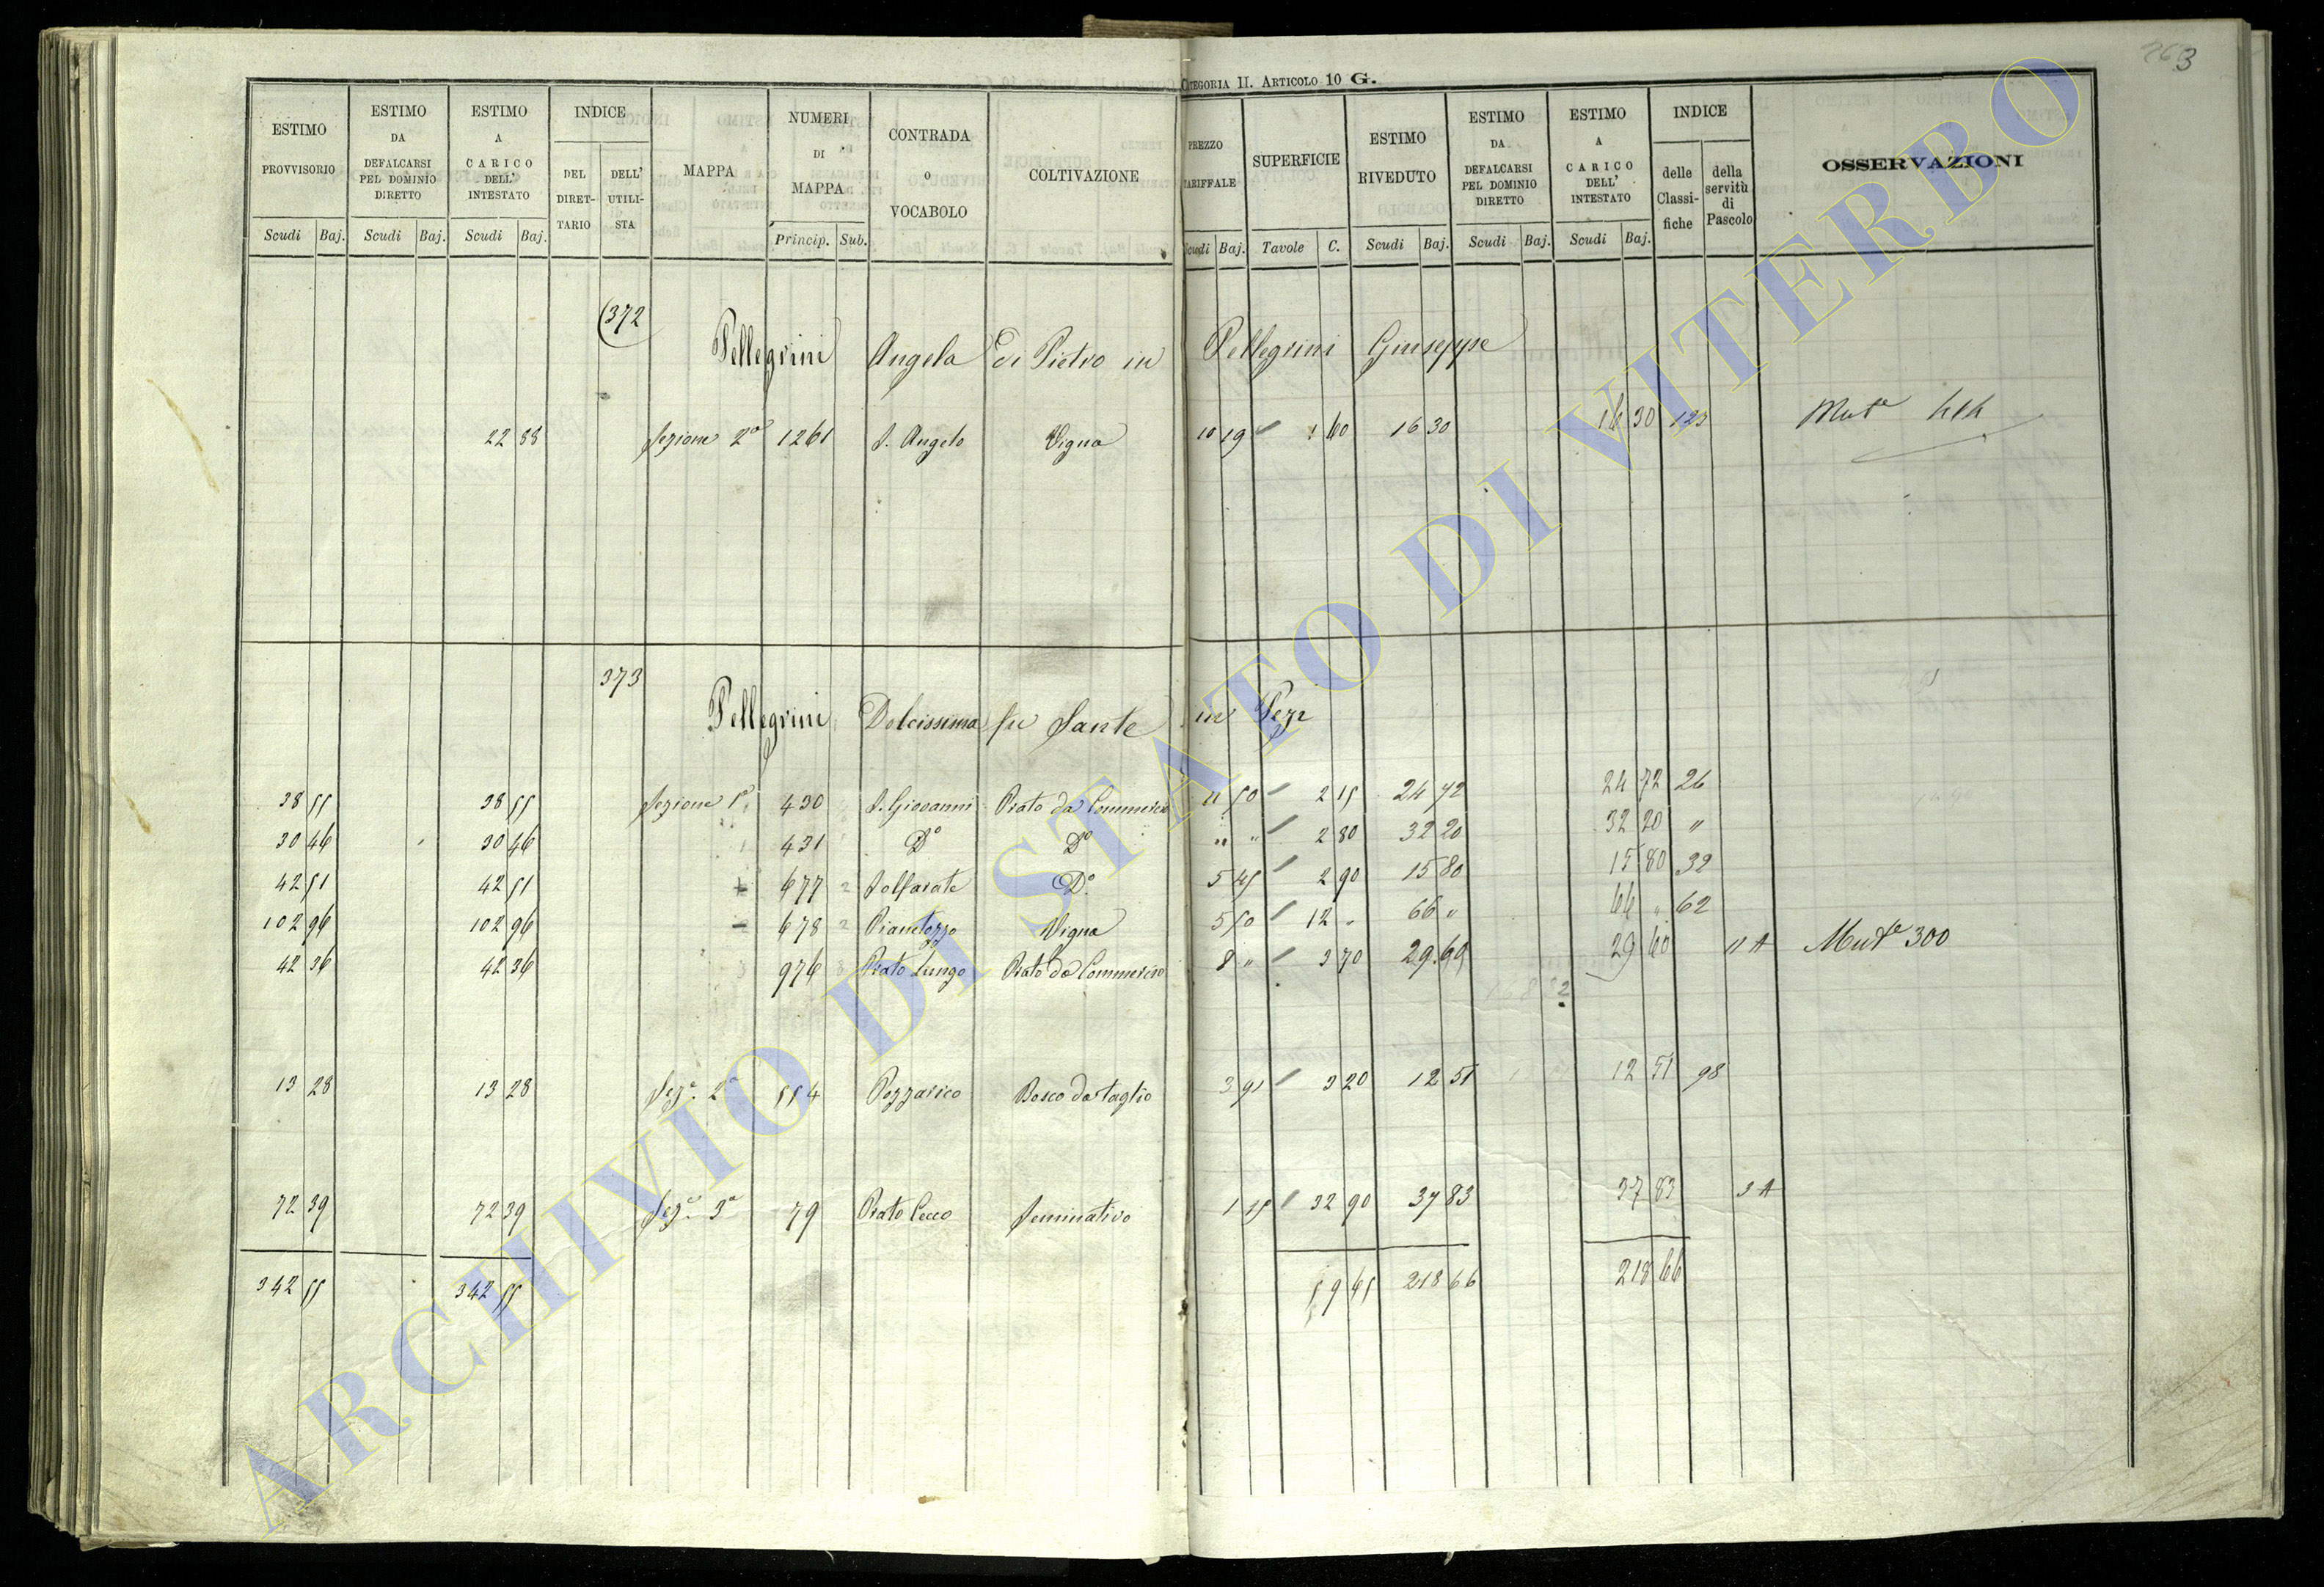 263
CATEGORIA II. ARTICOLO 10 G.
ESTIMO PROVVISORIO Scudi Baj.
ESTIMO DA DEFALCARSI PEL DOMINIO DIRETTO Scudi Baj.
ESTIMO A CARICO DELL' INTESTATO Scudi Baj.
INDICE DEL DIRETTARIO DELL' UTILISTA
MAPPA
NUMERI DI MAPPA Princip. Sub.
CONTRADA O VOCABOLO
COLTIVAZIONE
PREZZO TARIFFALE Scudi Baj.
SUPERFICIE Tavole C.
ESTIMO RIVEDUTO Scudi Baj.
ESTIMO DA DEFALCARSI PEL DOMINIO DIRETTO Scudi Baj.
ESTIMO A CARICO DELL' INTESTATO Scudi Baj.
INDICE delle Classifiche della servitù di Pascolo
OSSERVAZIONI
372
Pellegrini Angela di Pietro in Pellegrini Giuseppe
22 88 Sezione 2a 1261 S. Angelo Vigna 10 19 1 60 16 30 16 30 123 Muta
373
Pellegrini Dolcissima fu Sante in Pezz
38 55 38 55 Sezione 1a 430 S. Giovanni Prato da Commercio 11 50 2 15 24 72 24 72 26
30 46 30 46 431 Do Do " " 2 80 32 20 32 20 "
42 51 42 51 677 2 Solfarate Do 5 45 2 90 15 80 15 80 32
102 96 102 96 678 2 Pianetozzo Vigna 5 50 12 " 66 " 66 " 62
42 36 42 36 976 Prato Lungo Prato da Commercio 8 " 3 70 29 60 29 60 11 A Muta 300
13 28 13 28 Seze 2a 554 Pozzarico Bosco da taglio 3 91 3 20 12 51 12 51 98
72 39 72 39 Seze 3a 79 Prato Cecco Seminativo 1 15 32 90 37 83 37 83 3 A
342 55 342 55 59 65 218 66 218 66
ARCHIVIO DI STATO DI VITERBO